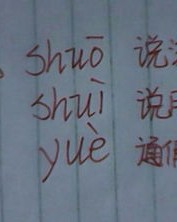 shuō 说
shuì 说
yuè 通